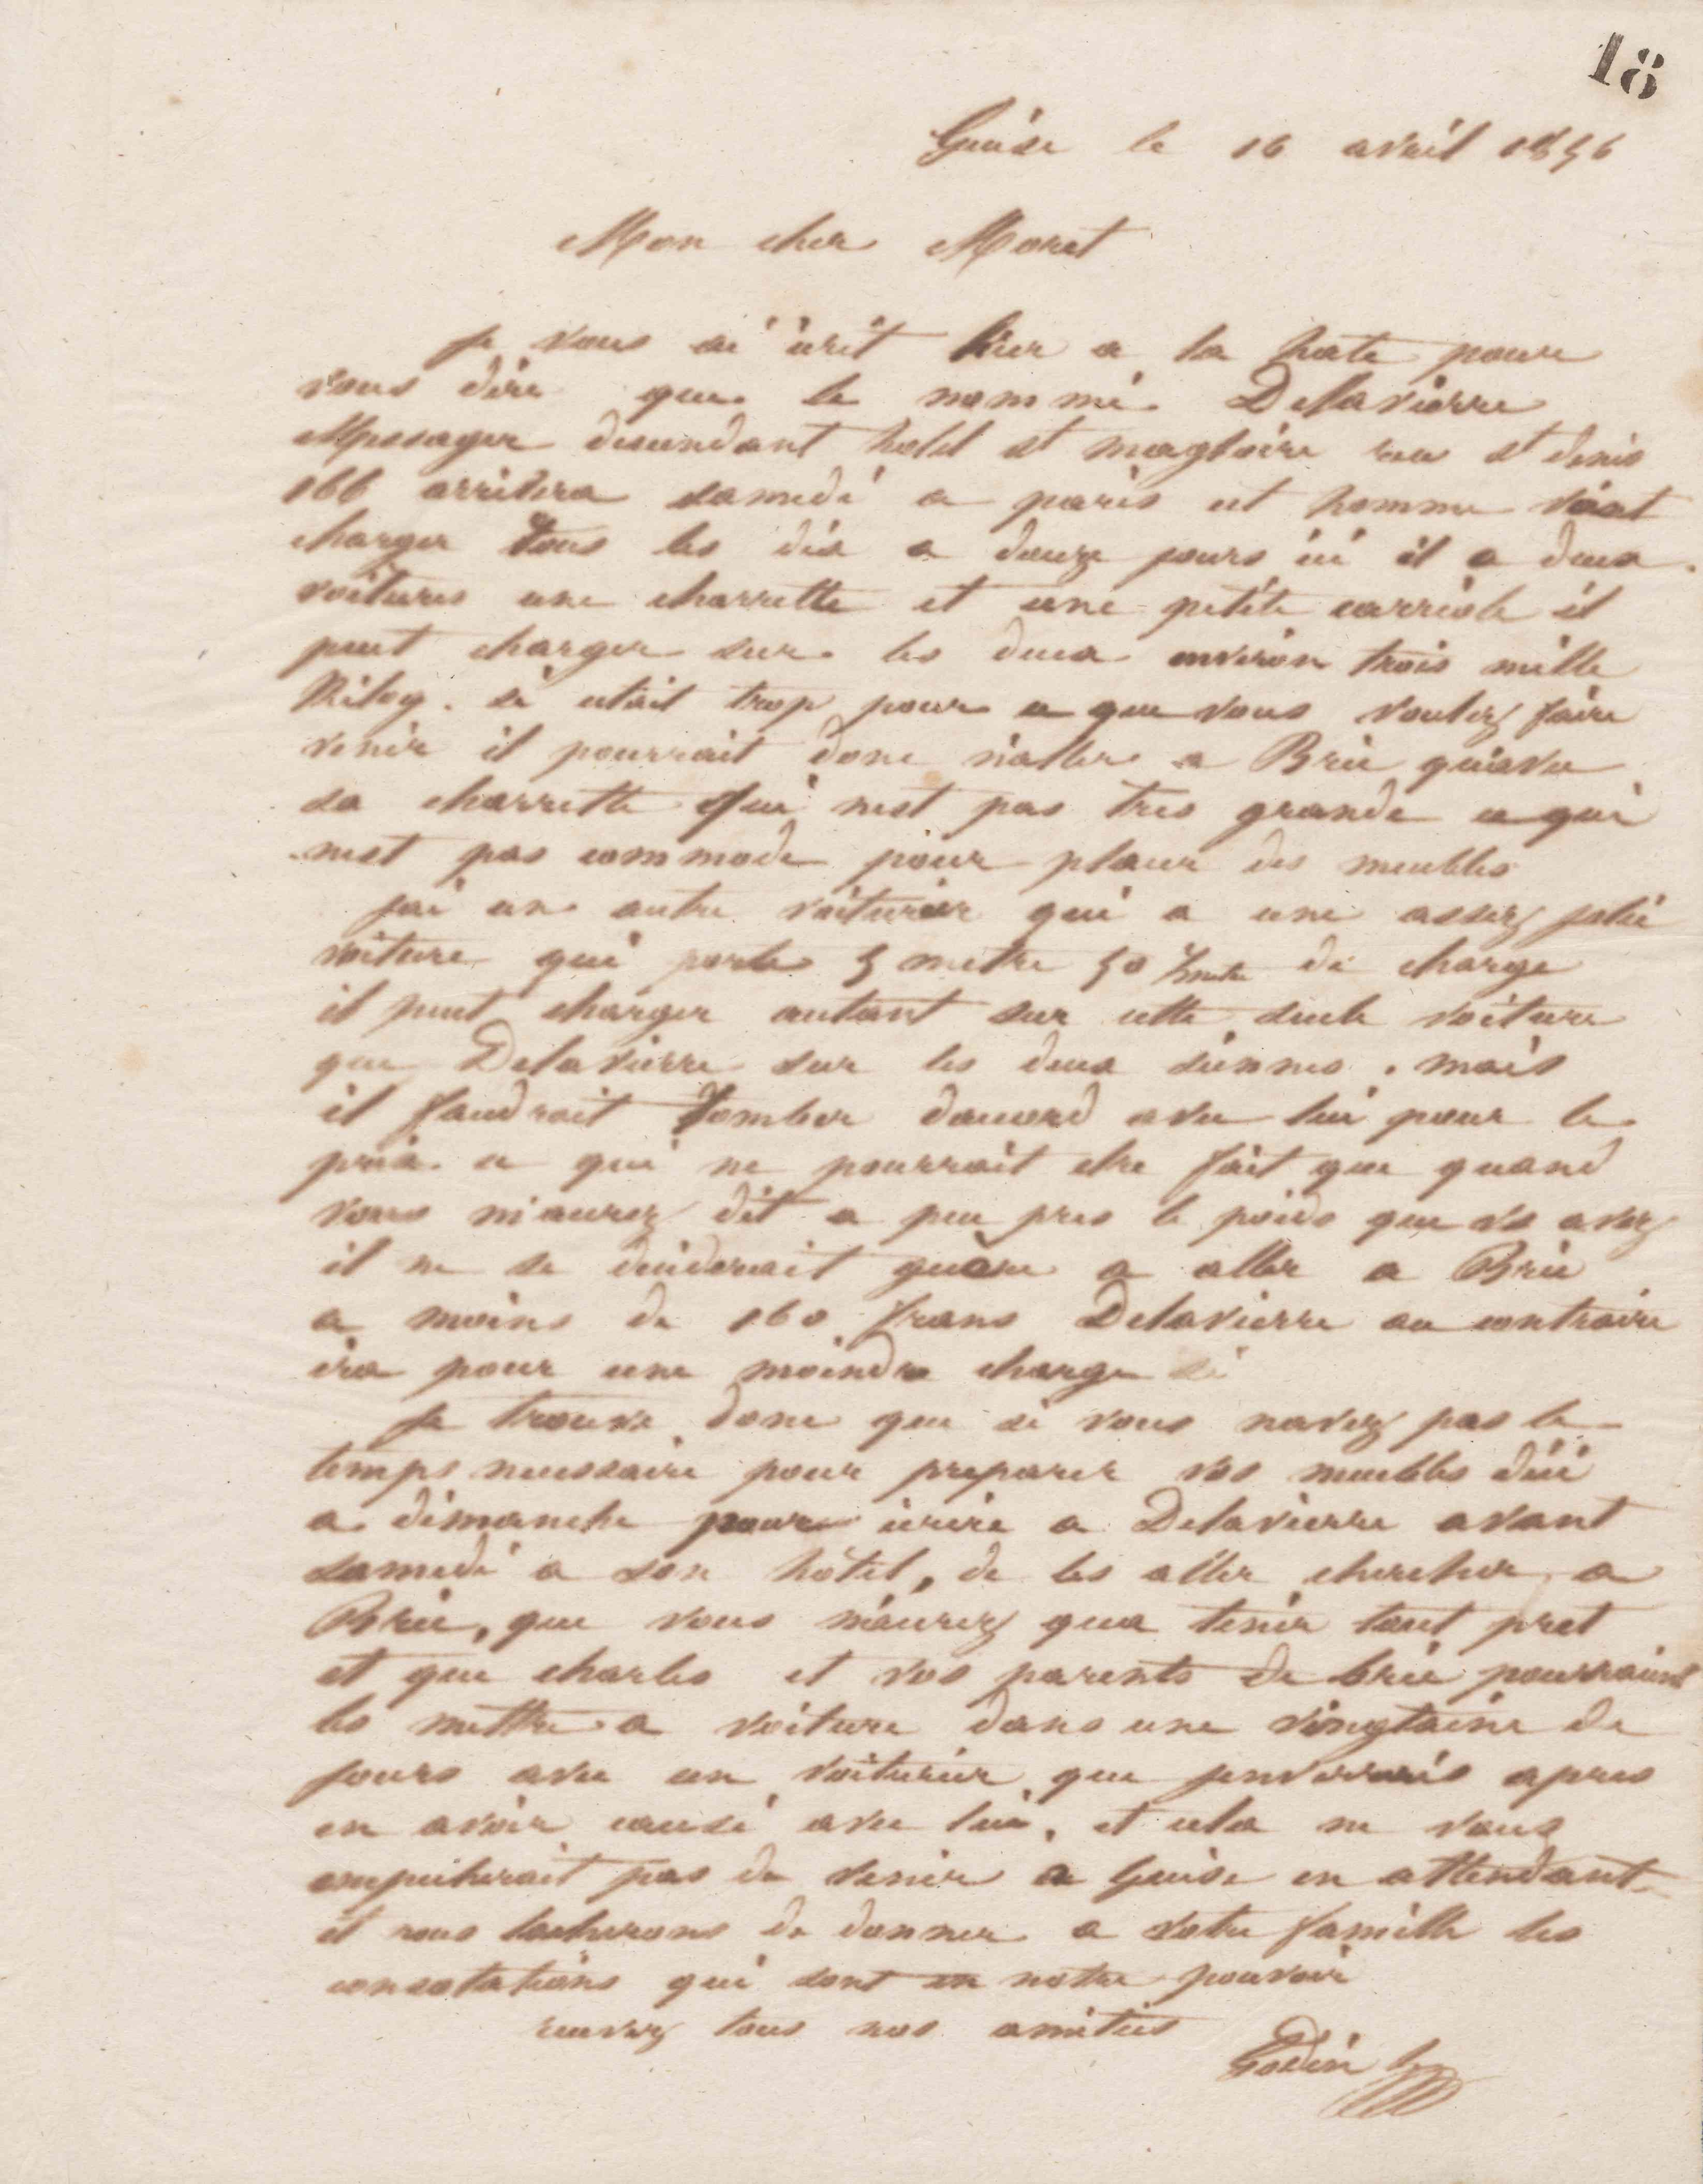 18
Guise le 16 avril 1856
Mon cher Moret
Je vous ai écrit hier a la hate pour
vous dire que le nommé Delavierre
Messager descendant hotel st magloire rue st denis
166 arrivera samedi a paris cet homme vient
charger tous les dix a douze jours ici il a deux
voitures une charrette et une petite carriole il
peut charger sur les deux environ trois mille
Kilog. si cétait trop pour ce que vous voulez faire
venir il pourrait donc n'aller a Brie qu'avec
sa charrette qui nest pas tres grande ce qui
nest pas commode pour placer des meubles
jai un autre voiturier qui a une assez jolie
voiture qui porte 5 metre 50 de charge
il peut charger autant sur cette seule voiture
que Delavierre sur les deux siennes. mais
il faudrait tomber daccord avec lui pour le
prix ce qui ne pourrait etre fait que quand
vous m'aurez dit a peu pres le poids que vs avez
il ne se déciderait guère a aller a Brie
a moins de 160 francs Delavierre au contraire
ira pour une moindre charge si
Je trouve donc que si vous navez pas le
temps necessaire pour preparer vos meubles dici
a dimanche pour écrire a Delavierre avant
samedi a son hôtel, de les aller chercher a
Brie, que vous n'aurez qua tenir tout pret
et que charles et vos parents de brie pourraient
les mettre a voiture dans une vingtaine de
jours avec un voiturier que jenverrais apres
en avoir causé avec lui, et cela ne vous
empecherait pas de venir a Guise en attendant
et nous tacherons de donner a votre famille les
consolations qui sont en notre pouvoir
recevez tous nos amitiés
Godin